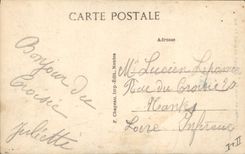 CARTE POSTALE
Adresse
Bonjour du
Croisic
Juliette
F. Chapeau, Imp.-Edit., Nantes
Mr Lucien
Rue du Croisic
Nantes
Loire Inférieure